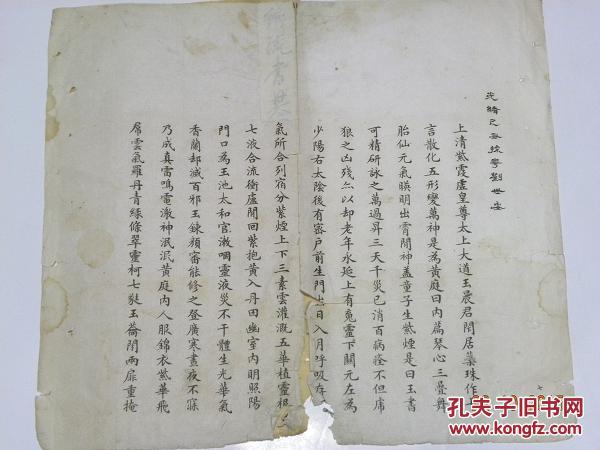 光緒己亥 劉世安
上清紫霞虛皇尊太上大道玉晨君閑居蘂珠作七
言散化五形變萬神是為黃庭曰內篇琴心三疊舞
胎仙元氣暎明出霄間神盖童子生紫煙是曰玉書
可精研詠之萬過昇三天千災已消百病痊不但虎
狼之凶殘亦以却老年永延上有䰟靈下關元左為
少陽右太陰後有密户前生門出日入月呼吸存
氣所合列宿分紫煙上下三素雲灌溉五華植靈根
七液合流衝盧間回紫抱黃入丹田幽室內明照陽
門口為玉池太和官漱咽靈液災不干體生光華氣
香蘭却滅百邪玉鍊顏審能修之登廣寒晝夜不寐
乃成真雷鳴電激神泯泯黃庭內人服錦衣紫華飛
帬雲氣羅丹青綠條翠靈柯七蕤玉籥閉兩扉重掩
孔夫子旧书网